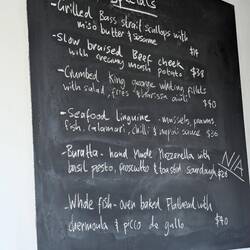 Specials
-Grilled Bass strait scallops with
miso butter & sesame $14
-Slow braised Beef cheek
with creamy mash potato $38
-Crumbed King george whiting fillets
with salad, fries & aioli $40
-Seafood linguine - mussels, prawns,
fish, calamari, chilli & napoli sauce $36
-Buratta - hand made Mozzarella with
basil pesto, prosciutto & toasted sourdough $28
N/A
-Whole fish - oven baked Flathead with
chermoula & picco de gallo $40